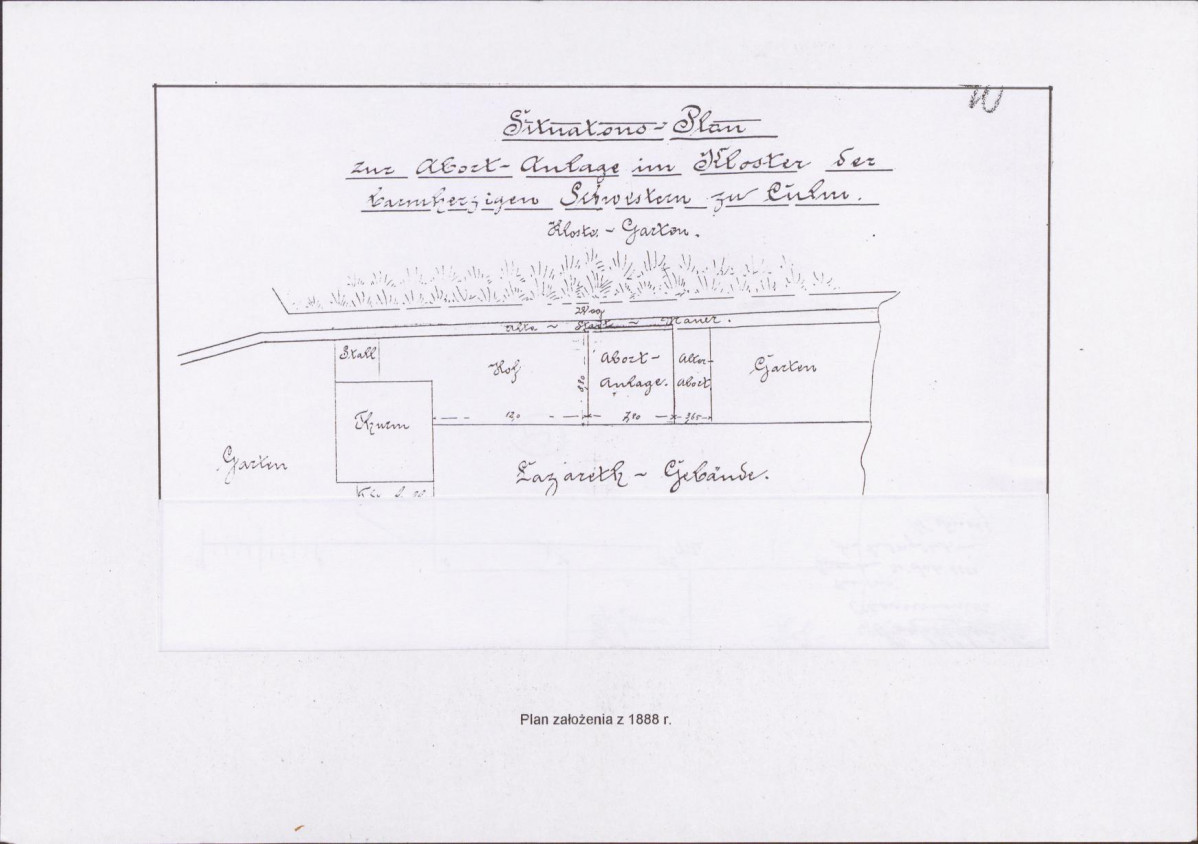 Situations-Plan
zur Abort-Anlage im Kloster der
barmherzigen Schwestern zu Culm.
Kloster-Garten.
Alte - Stadt - Mauer.
Stall
Hof
Abort-
Anlage.
Alter-
Abort
Garten
Thurm
Garten
Lazareth-Gebäude.
Plan założenia z 1888 r.